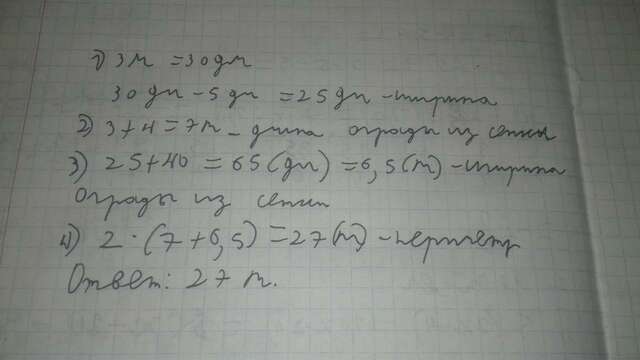 1) 3м = 30дм
30дм - 5дм = 25дм - ширина
2) 3 + 4 = 7м - длина ограды из сетки
3) 25 + 40 = 65 (дм) = 6,5 (м) - ширина
ограды из сетки
4) 2 · (7 + 6,5) = 27 (м) - периметр
Ответ: 27 м.